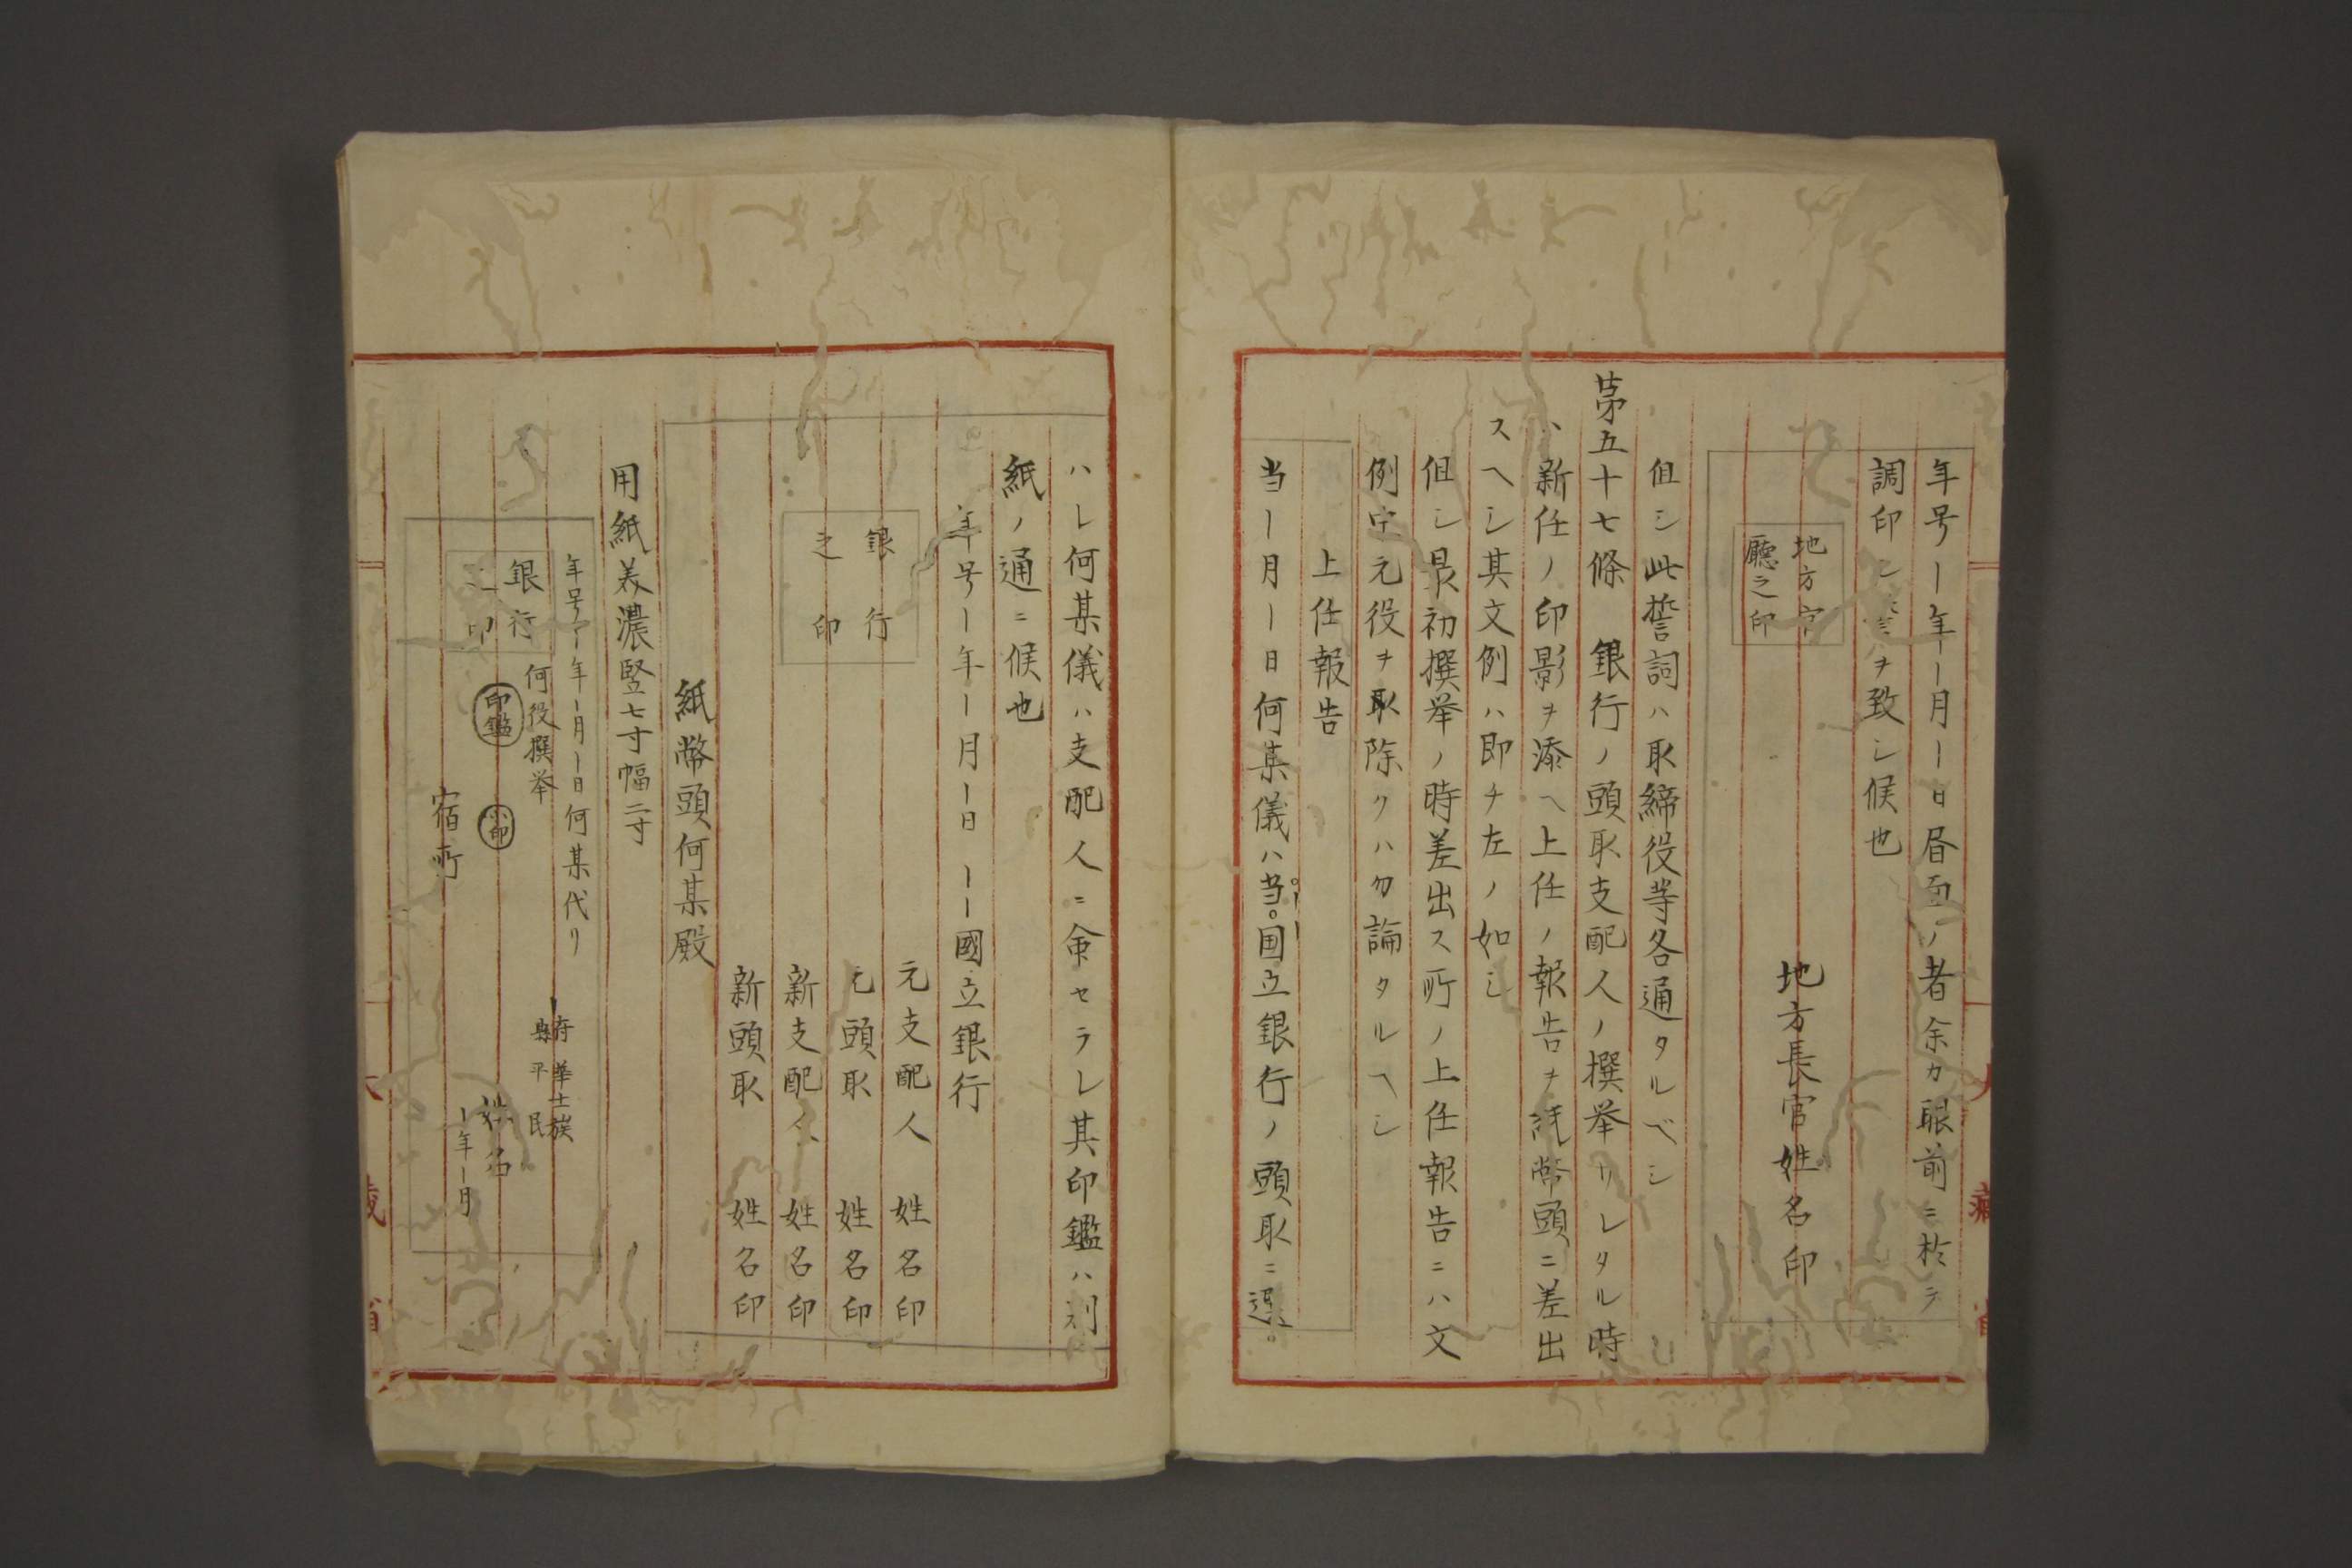 年号ー年ー月ー日昏面ノ者余カ眼前ニ於テ
調印シ ヲ致シ候也
地方官
廳之印
地方長官姓名印
伹シ此誓詞ハ取締役等各通タルベシ
苐五十七條 銀行ノ頭取支配人ノ撰挙サレタル時
ハ新任ノ印影ヲ添ヘ上任ノ報告ヲ紙幣頭ニ差出
スヘシ其文例ハ即チ左ノ如シ
伹シ最初撰挙ノ時差出ス所ノ上任報告ニハ文
例中元役ヲ取除クハ勿論タルヘシ
上任報告
当ー月ー日何某儀ハ当ーー国立銀行ノ頭取ニ選
ハレ何某儀ハ支配人ニ命セラレ其印鑑ハ別
紙ノ通ニ候也
年号ー年ー月ー日 ーー國立銀行
元支配人 姓名印
銀行
之印
元頭取 姓名印
新支配人 姓名印
新頭取 姓名印
紙幣頭何某殿
用紙美濃竪七寸幅二寸
年号ー年ー月ー日何某代リ
何役撰挙
銀行
之印
ー府縣 華士族平民
印鑑
小印
姓名
ー年ー月
宿所
大藏省